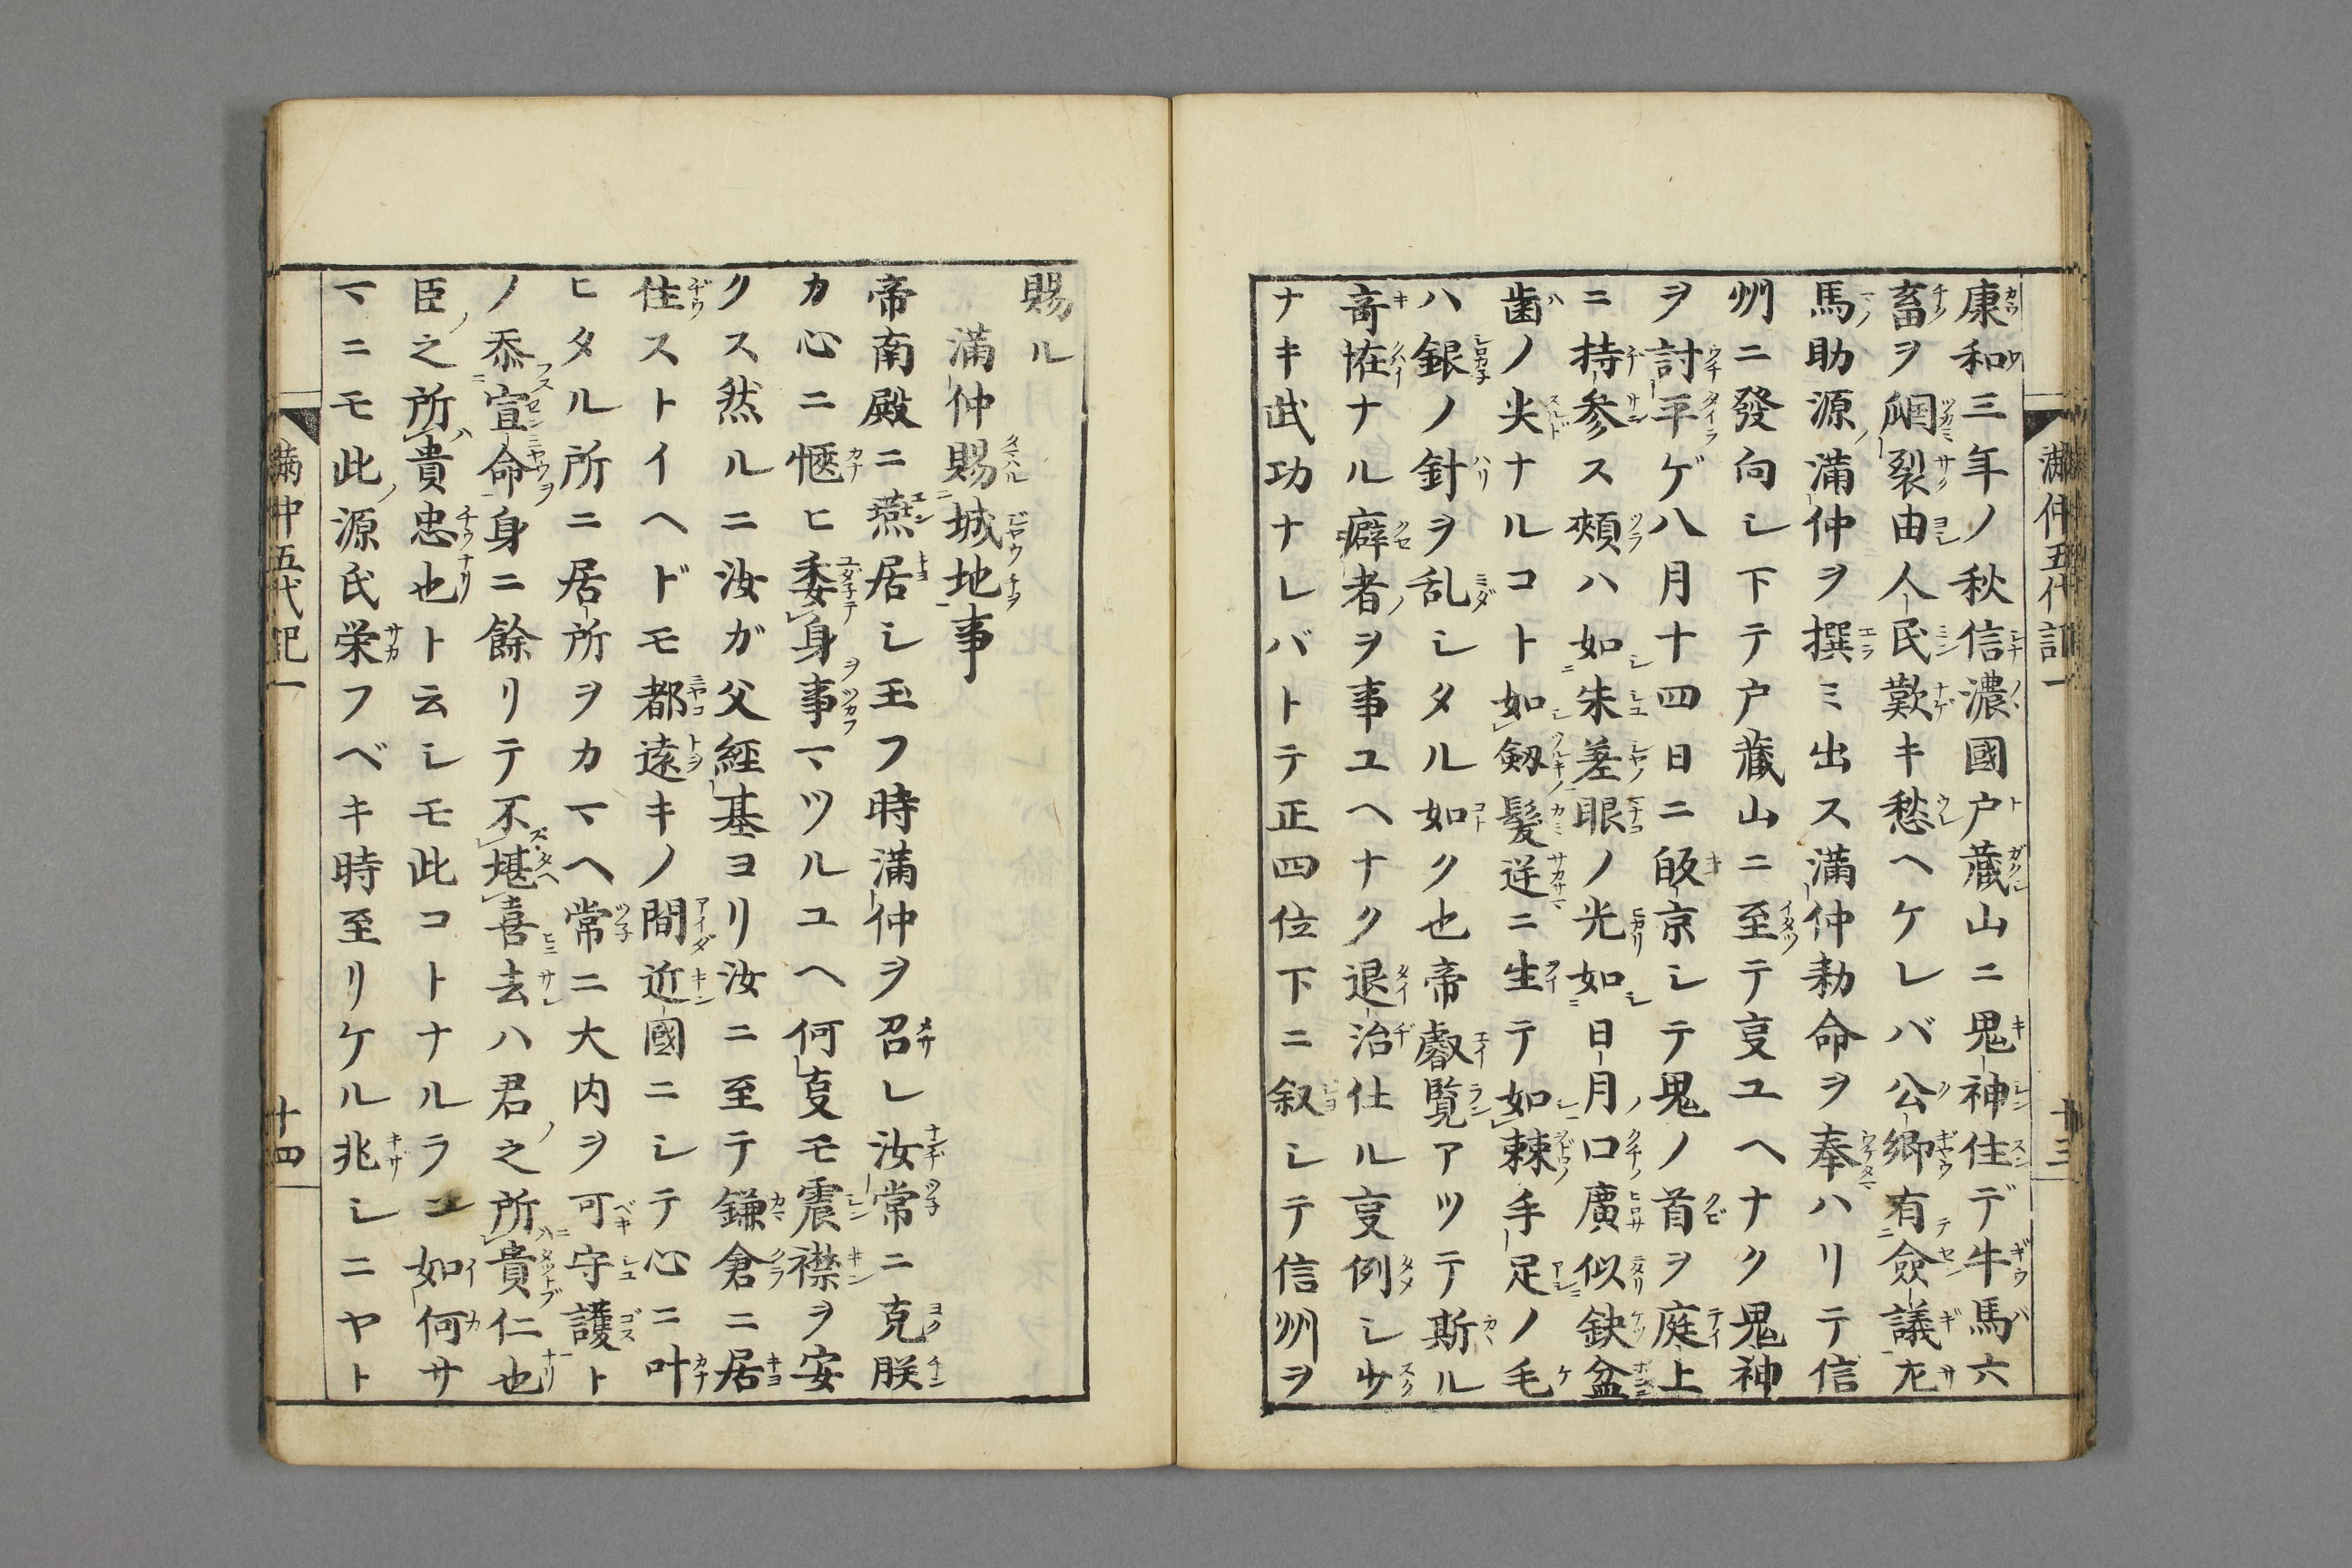 康和三年ノ秋信濃國户蔵山ニ鬼神住デ牛馬六
畜ヲ㕢裂由人民歎キ愁ヘケレバ公卿有僉議尤
馬助源満仲ヲ撰ミ出ス満仲勅命ヲ奉ハリテ信
州ニ發向シ下テ户蔵山ニ至テ叓ユヘナク鬼神
ヲ討平ゲ八月十四日ニ皈京シテ鬼ノ首ヲ庭上
ニ持参ス頬ハ如朱差眼ノ光如日月口廣似鈌盆
歯ノ尖ナルコト如剱髪逆ニ生テ如棘手足ノ毛
ハ銀ノ針ヲ乱シタル如ク也帝叡覧アツテ斯ル
竒恠ナル癖者ヲ事ユヘナク退治仕ル叓例シ少
ナキ武功ナレバトテ正四位下ニ叙シテ信州ヲ
満仲五代記一
十三
賜ル
満仲賜城地事
帝南殿ニ燕居シ玉フ時満仲ヲ召レ汝常ニ克朕
カ心ニ愜ヒ委身事マツルユヘ何叓モ震襟ヲ安
クス然ルニ汝ガ父經基ヨリ汝ニ至テ鎌倉ニ居
住ストイヘドモ都遠キノ間近國ニシテ心ニ叶
ヒタル所ニ居所ヲカマヘ常ニ大内ヲ可守護ト
ノ忝宣命身ニ餘リテ不堪喜去ハ君之所貴仁也
臣之所貴忠也ト云シモ此コトナルラン如何サ
マニモ此源氏栄フベキ時至リケル兆シニヤト
満仲五代記一
十四